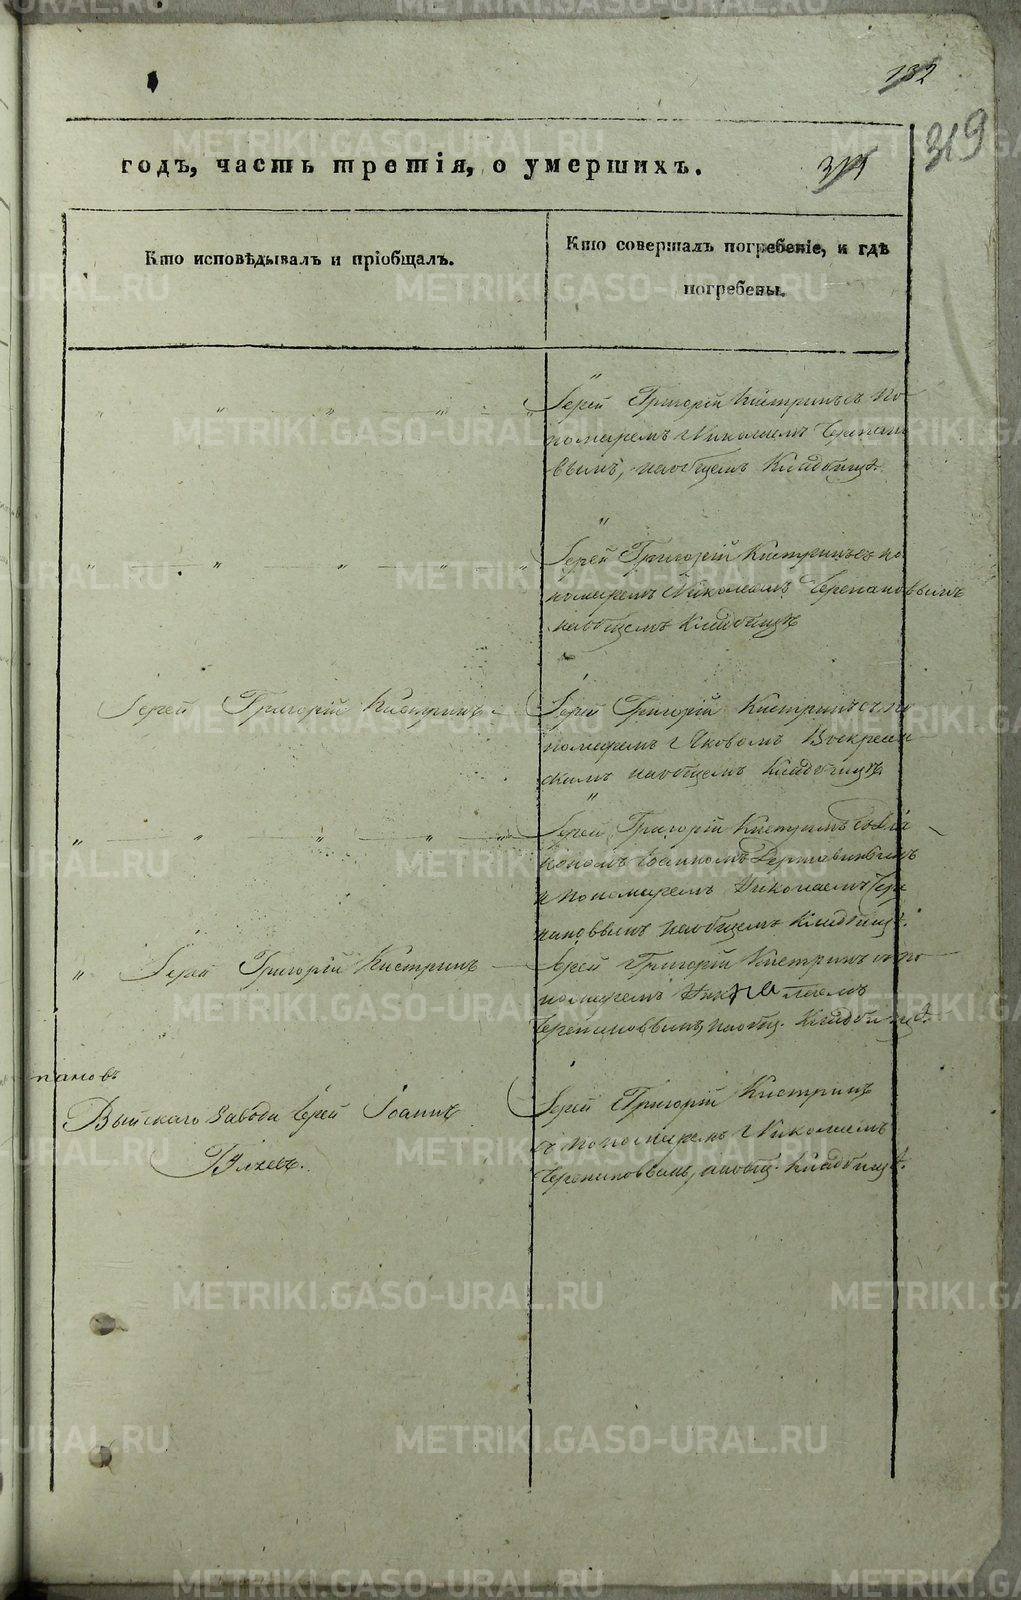 132
319
годъ, часть третія, о умершихъ.
Кто исповѣдывалъ и пріобщалъ.
Кто совершалъ погребеніе, и гдѣ
погребены.
Іерей Григорій Кистринъ съ по-
номаремъ Николаемъ Черепано-
вымъ, на общемъ Кладбищѣ.
Іерей Григорій Кистринъ съ по-
номаремъ Николаемъ Черепановымъ
на общемъ Кладбищѣ
Іерей Григорій Кистринъ
Іерей Григорій Кистринъ съ по-
номаремъ Яковомъ Воскресен-
скимъ на общемъ Кладбищѣ
Іерей Григорій Кистринъ съ Діа-
кономъ Іоанномъ Державинымъ
и пономаремъ Николаемъ Чере-
пановымъ на общемъ Кладбищѣ.
Іерей Григорій Кистринъ
Іерей Григорій Кистринъ съ по-
номаремъ Николаемъ
Черепановымъ, на общ. Кладбищѣ.
пановъ
Выйскаго Завода Іерей Іоаннъ
Іерей Григорій Кистринъ
съ пономаремъ Николаемъ
Черепановымъ, на общ. Кладбищѣ.
METRIKI.GASO-URAL.RU